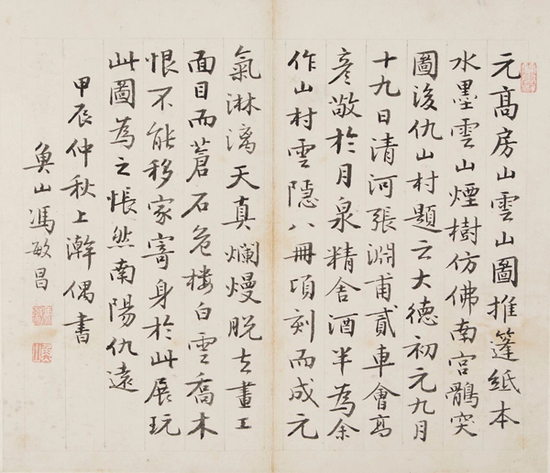 元高房山雲山圖推篷紙本
水墨雲山煙樹仿佛南宮鶻突
圖後仇山村題云大德初元九月
十九日清河張淵甫貳車會高
彥敬於月泉精舍酒半為余
作山村雲隱八冊頃刻而成元
氣淋漓天真爛熳脫去畫工
面目而蒼石危樓白雲喬木
恨不能移家寄身於此展玩
此圖為之悵然南陽仇遠
甲辰仲秋上澣偶書
魚山馮敏昌